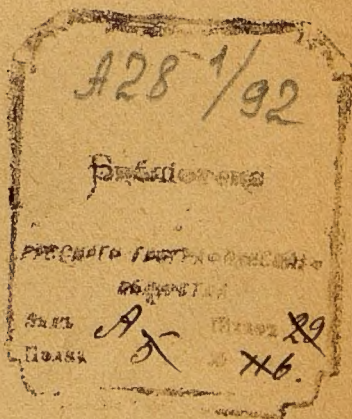 А28 1/92
Библіотека
РУССКАГО ГЕОГРАФИЧЕСКАГО
ОБЩЕСТВА
Залъ А Шкафъ 29
Полка 5 № 116.